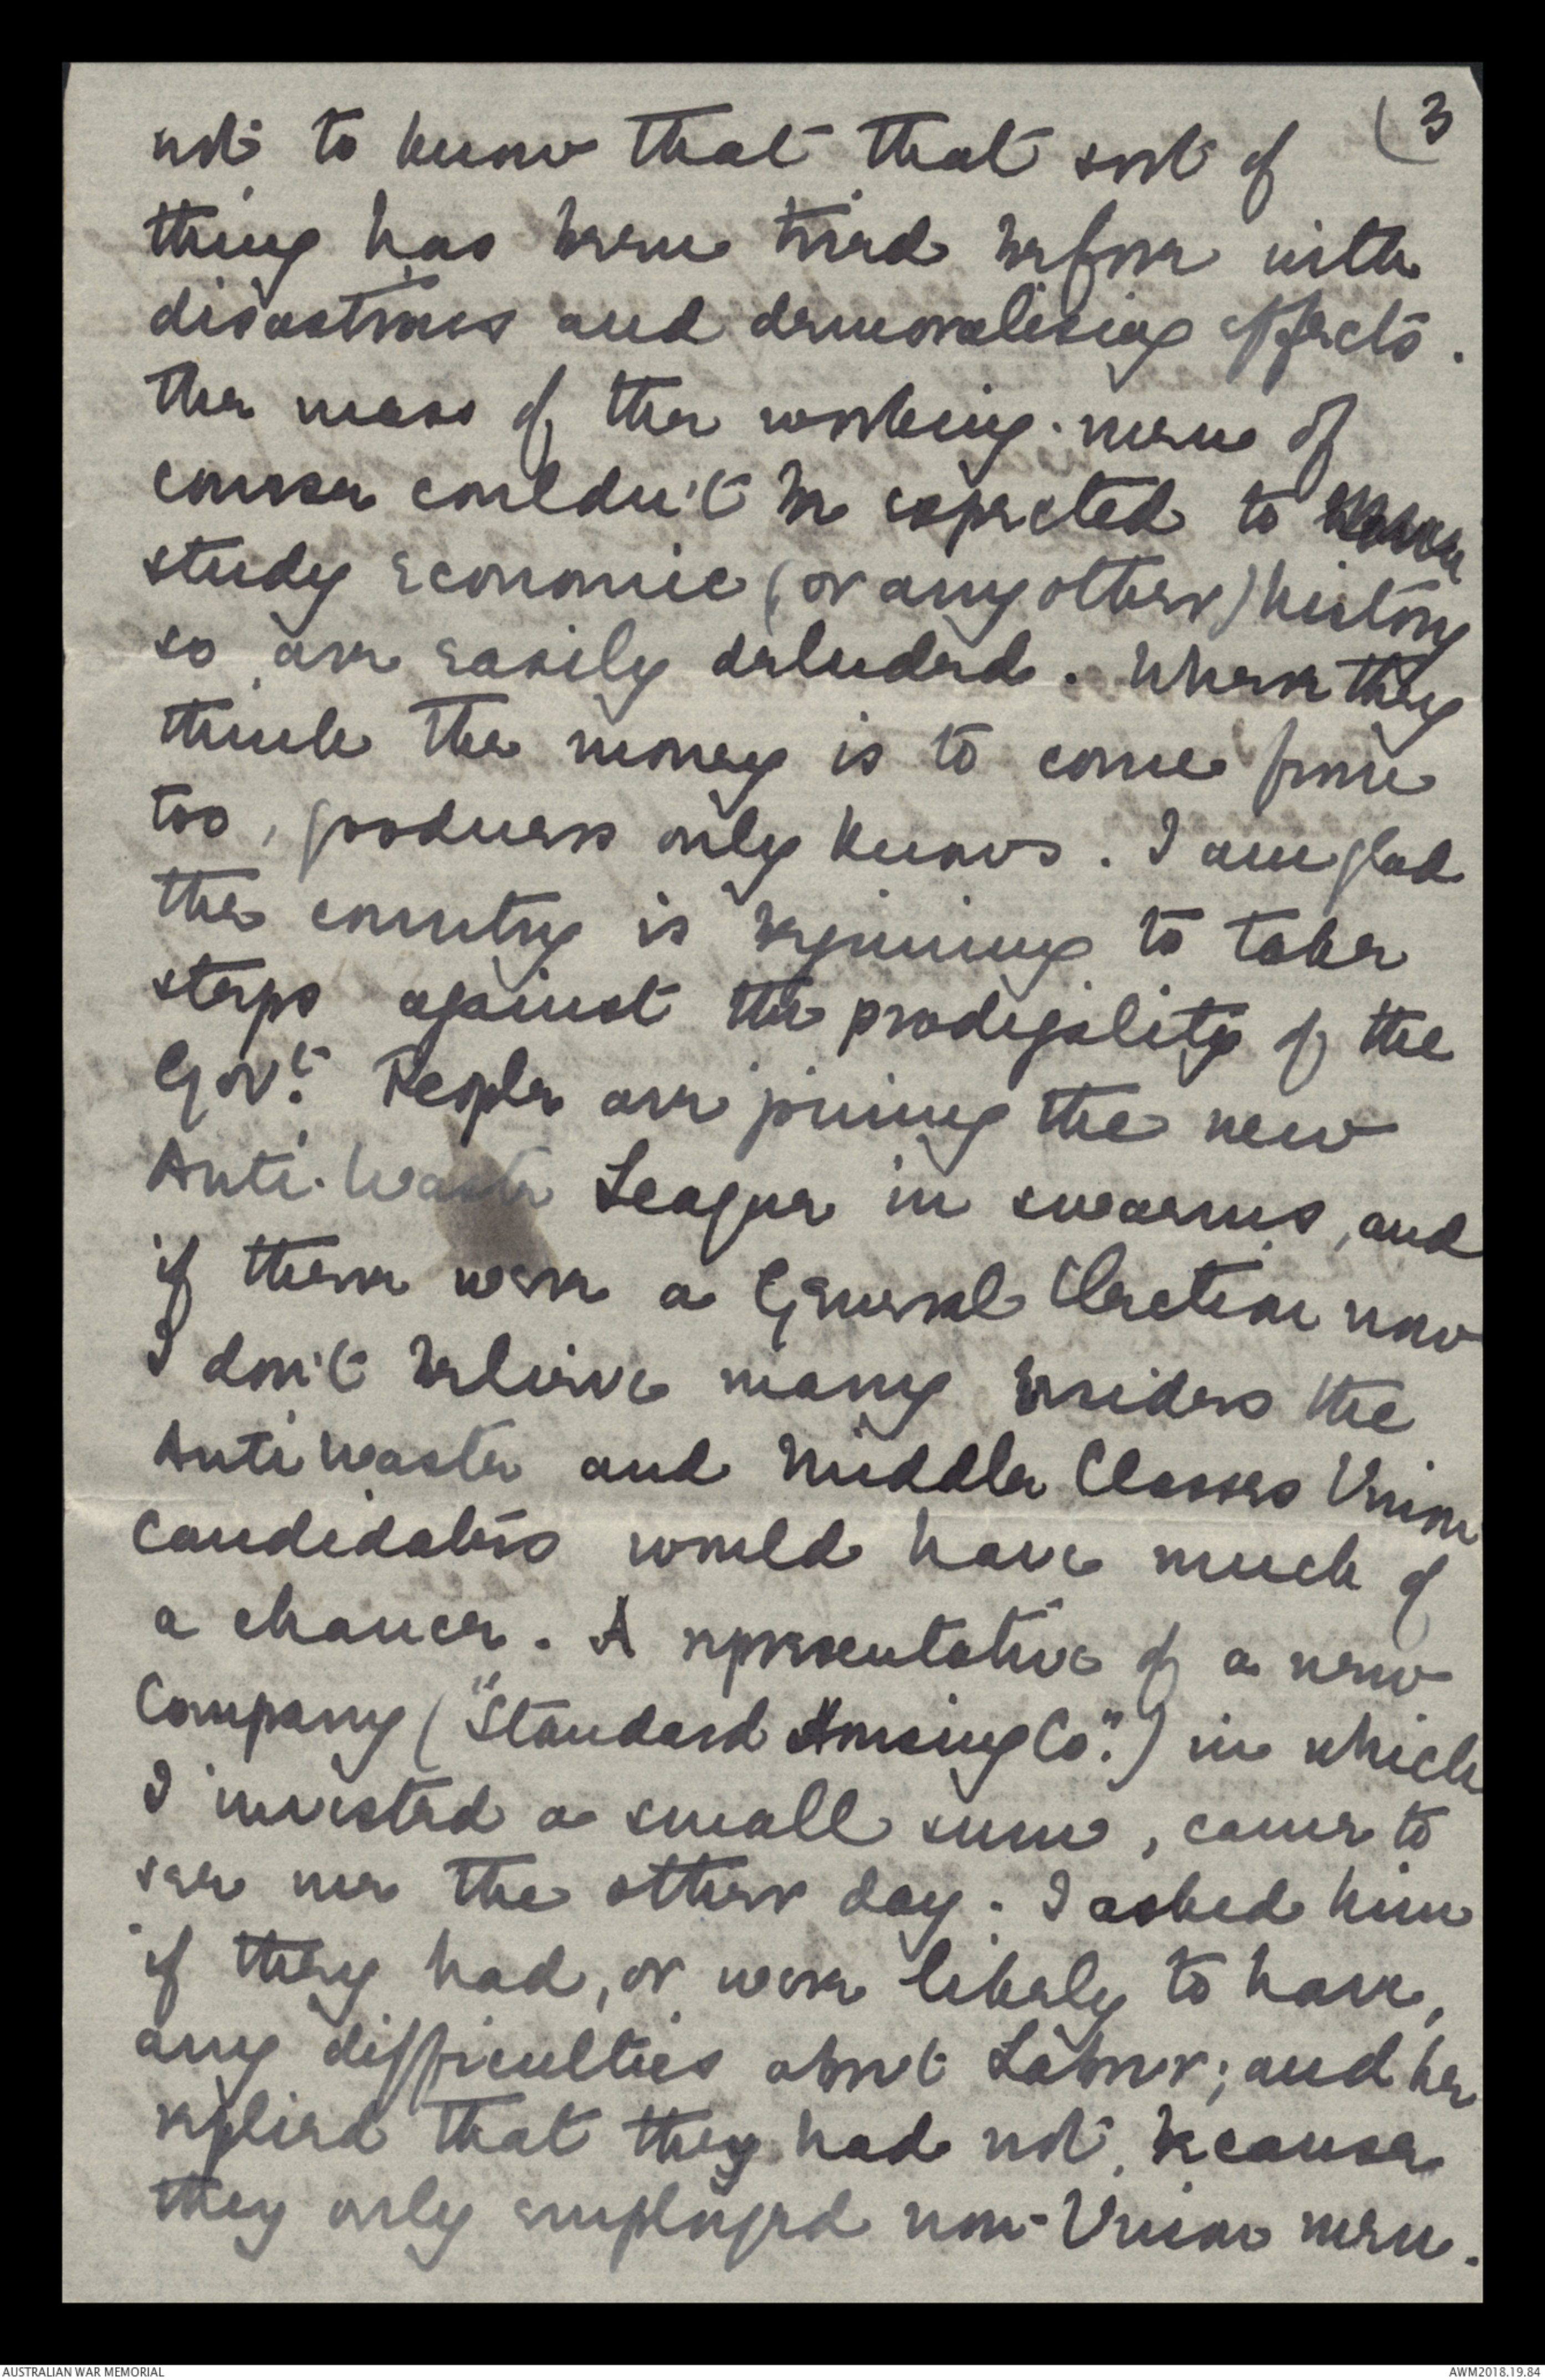 (3
not to know that that sort of
thing has been tried before with
disastrous and demoralising effects.
The mass of the working-men of
course couldn't be expected to
study economic (or any other) history
so are easily deluded. Where they
think the money is to come from
too, goodness only knows. I am glad
the country is beginning to take
steps against the prodigality of the
Govt. People are joining the new
Anti-Waste League in swarms, and
if there were a General Election now
I don't believe many besides the
Anti Waste and Middle Classes Union
Candidates would have much of
a chance. A representative of a new
Company ("Standard Housing Co.") in which
I invested a small sum, came to
see me the other day. I asked him
if they had, or were likely to have,
any difficulties about Labour; and he
replied that they had not, because
they only employed non-Union men.
AUSTRALIAN WAR MEMORIAL
AWM2018.19.84